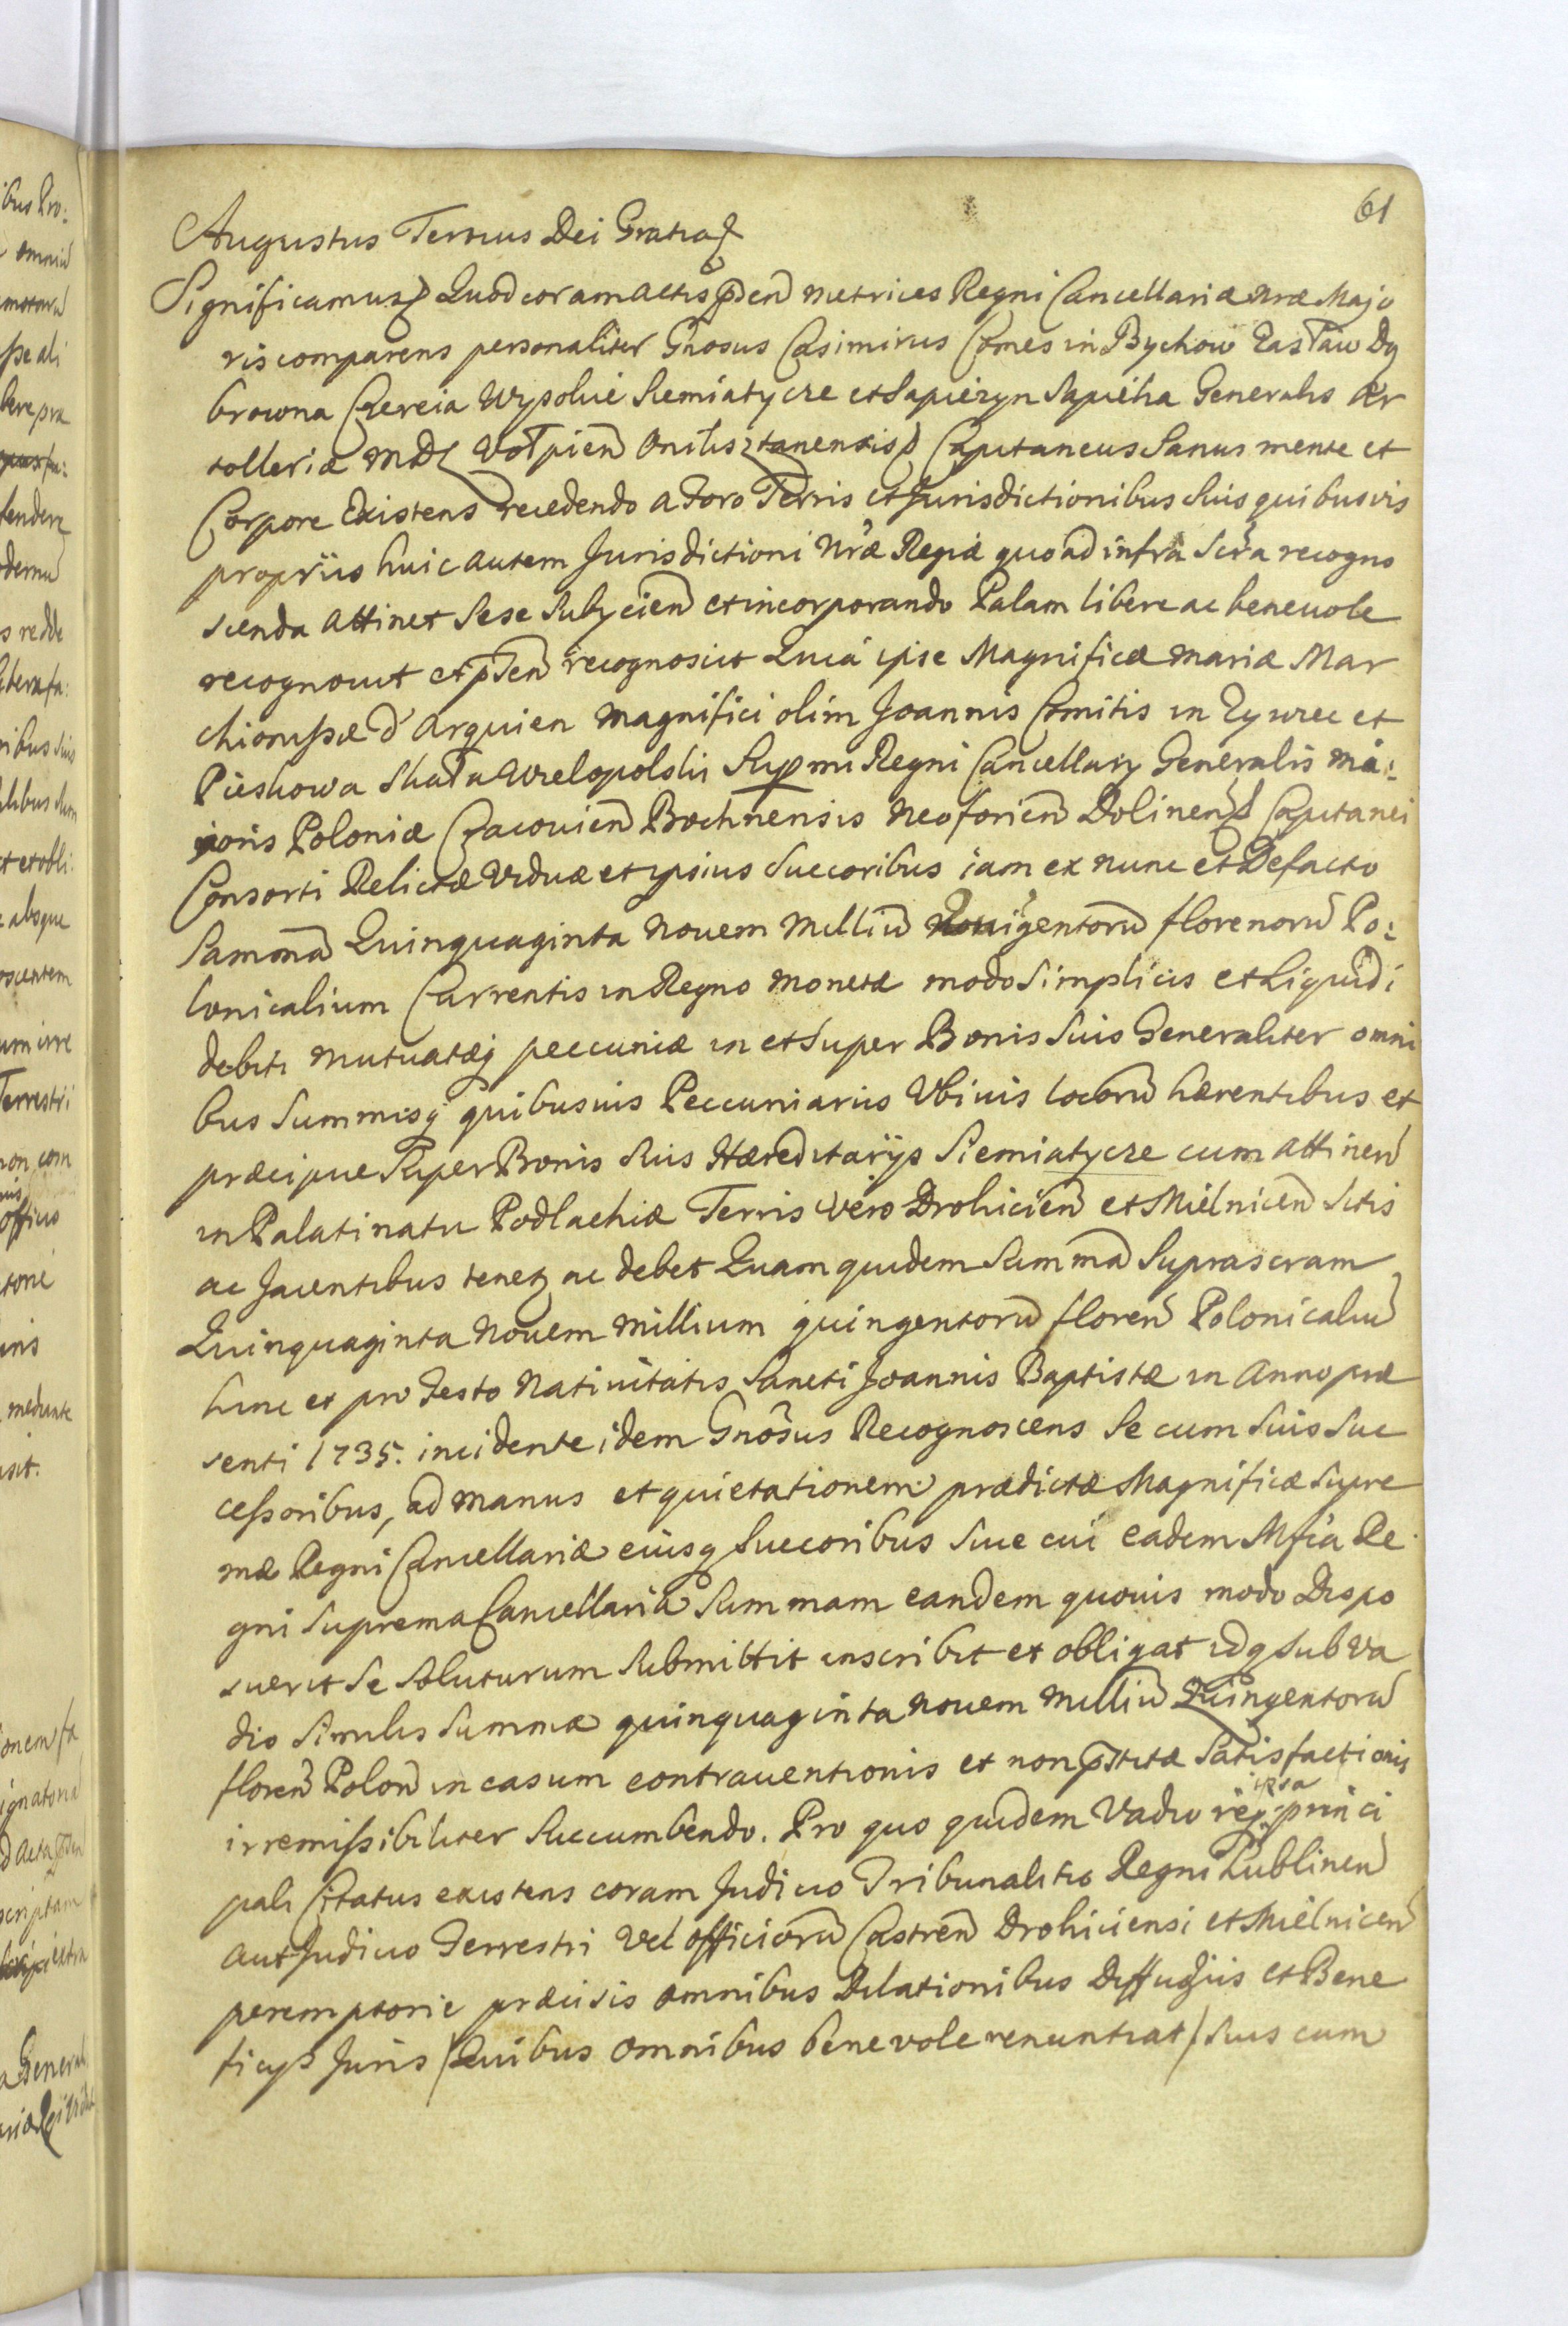 61
Augustus Tertius Dei Gratia
Significamus Quod coram actis psen Metrices Regni Cancellariæ Nræ Majo
ris comparens personaliter Gnosus Casimirus Comes in Bychow Zasław Dą
browna Czereia Wysokie Siemiatycze et Sapiezyn Sapieha Generalis Ar
tolleriæ MDL Wołpien Capitaneus Sanus mente et
Corpore Existens recedendo a Foro Terris et Jurisdictionibus suis quibusvis
proprijs huic autem Jurisdictioni Nræ Regiæ quo ad infra Scra recogno
scenda attinet Sese Subijcien et incorporando Palam libere ac beneuole
recognouit et psen recognoscit Quia ipse Magnificæ Mariæ Mar
chionissæ d'Arquien Magnifici olim Joannis Comitis in Zywiec et
Pieskowa Skała Wielopolski Supmi Regni Cancellarij Generalis Ma:
joris Poloniæ Cracovien Bochnensis Neoforien Dolinen Capitanei
Consorti Relictæ Viduæ et ipsius Succoribus iam ex nunc et Defacto
Summam Quinquaginta Nouem Milliu Quigentoru florenoru Po:
lonicalium Currentis in Regno Monetæ modo Simplicis et Liquidi
debiti Mutuatæq peccuniæ in et Super Bonis Suis Generaliter omni
bus Summisq quibusuis Peccuniariis Ubiuis locoru hærentibus et
præcipue Super Bonis Suis Hæreditarijs Siemiatycze cum attinen
in Palatinatu Podlachiæ Terris vero Drohicien et Mielnicen Sitis
ac Jacentibus tenet ac debet Quam quidem Summa Suprascram
Quinquaginta Nouem Millium quingentoru floren Polonicaliu
hinc et pro Festo Natiuitatis Sancti Joannis Baptistæ in Anno præ
senti 1735. incidente idem Gnosus Recognoscens Se cum Suis Suc
cessoribus, ad manus et quietationem prædictæ Magnificæ Supre
mæ Regni Cancellariæ eiusq Succoribus Siue cui eadem Mfica Re
gni Suprema Cancellaria Summam eandem quouis modo Dispo
suerit Se Soluturum Submittit inscribit et obligat idq sub Va
dio Similis Summæ quinquaginta Nouem Milliu Quingentoru
floren Polon in casum contrauentionis et non pstitæ Satisfactionis
irremissibiliter Succumbendo. Pro quo quidem Vadio req ipsa princi
pali Citatus existens coram Judicio Tribunalitio Regni Lublinen
aut Judicio Terrestri Vel officioru Castren Drohiciensi et Mielnicen
peremptorie præcisis omnibus Dilationibus Diffugiis et Bene
ficijs Juris (Quibus omnibus beneuole renuntiat) Suis cum